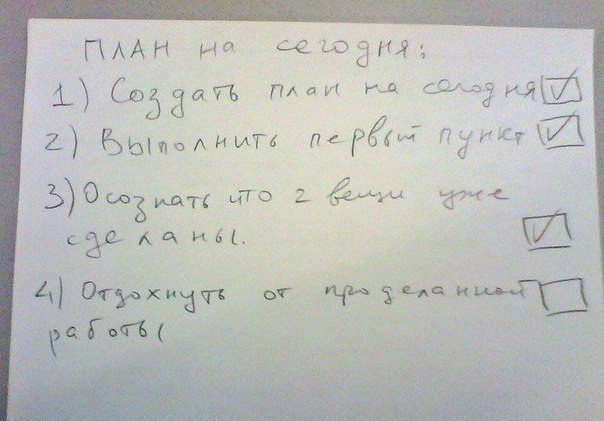 ПЛАН на сегодня:
1) Создать план на сегодня
2) Выполнить первый пункт
3) Осознать что 2 вещи уже
сделаны.
4) Отдохнуть от проделанной
работы